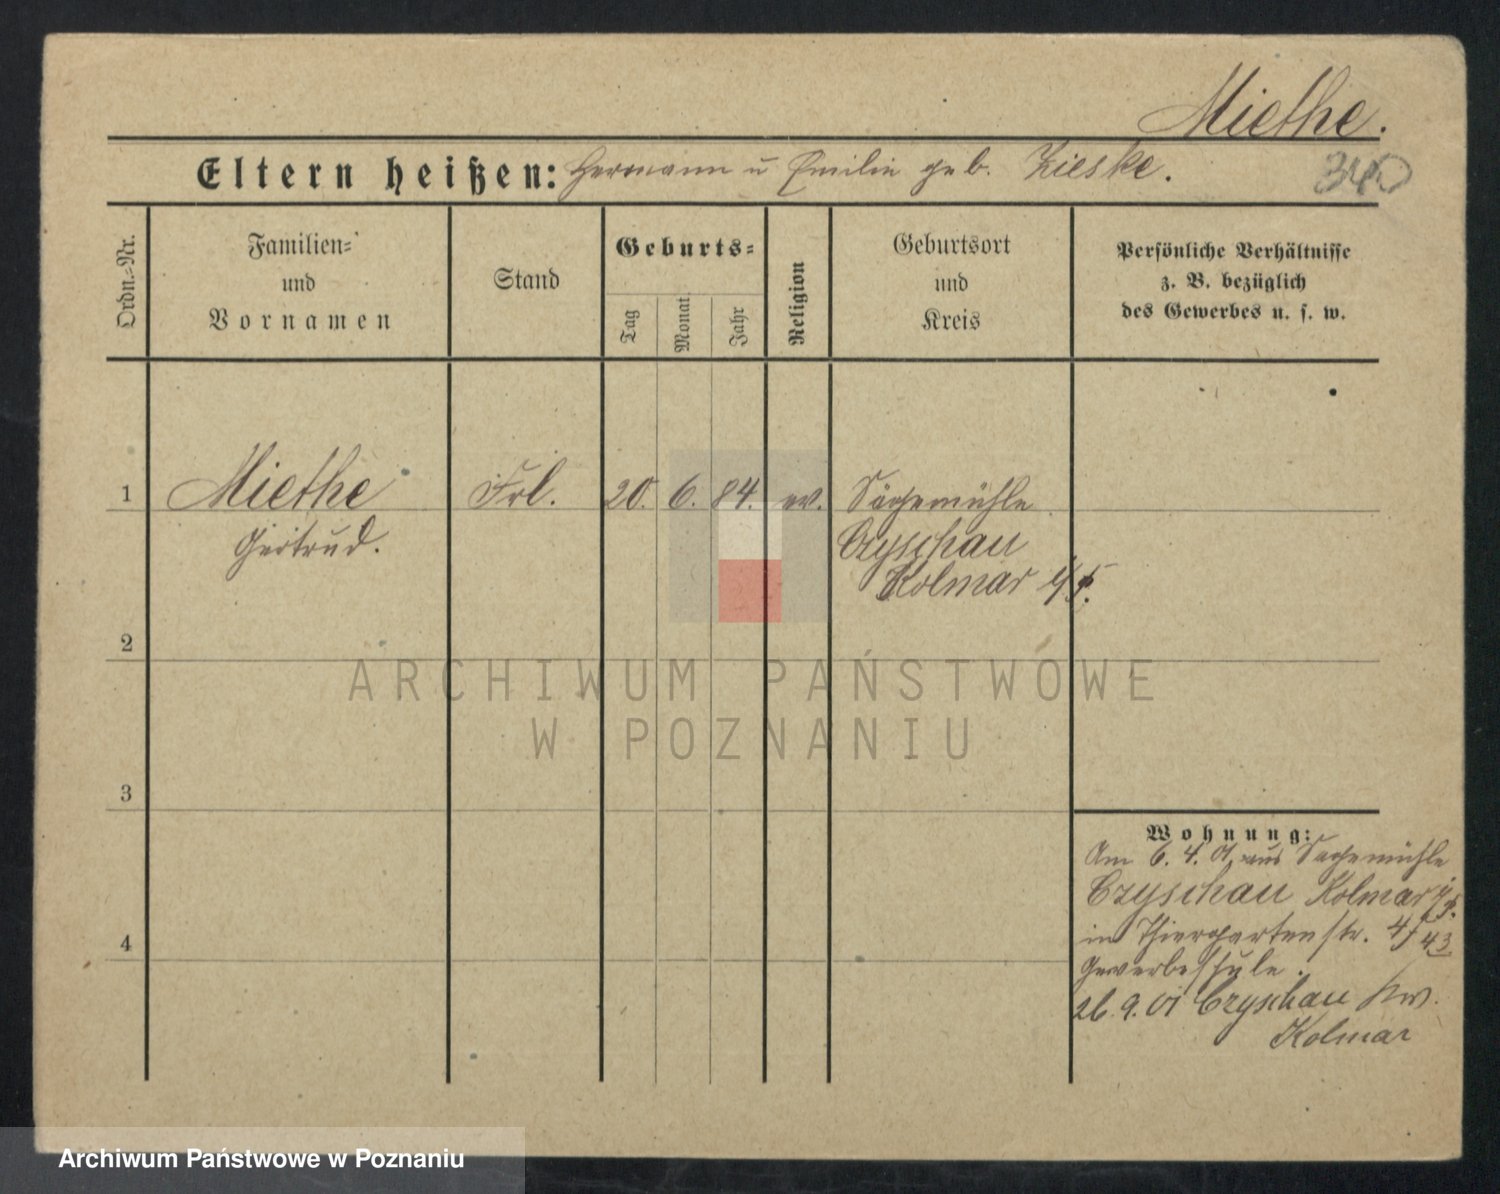 Miethe.
340
Eltern heißen: Hermann u Emilie geb. Zieske.
Ordn.-Nr.
Familien-
und
Vornamen
Stand
Geburts-
Tag
Monat
Jahr
Religion
Geburtsort
und
Kreis
Persönliche Verhältnisse
z. B. bezüglich
des Gewerbes u. s. w.
1 Miethe Frl. 20. 6. 84. ev. Sägemühle
Gertrud. Czyschau
Kolmar i/P.
2
3
4
Wohnung:
Am 6. 4. 01 aus Sagemühle
Czyschau Kolmar i/P.
in Thiergartenstr. 4/43
Gewerbeschule.
26. 9. 01 Czyschau Krs.
Kolmar
ARCHIWUM PAŃSTWOWE
W POZNANIU
Archiwum Państwowe w Poznaniu